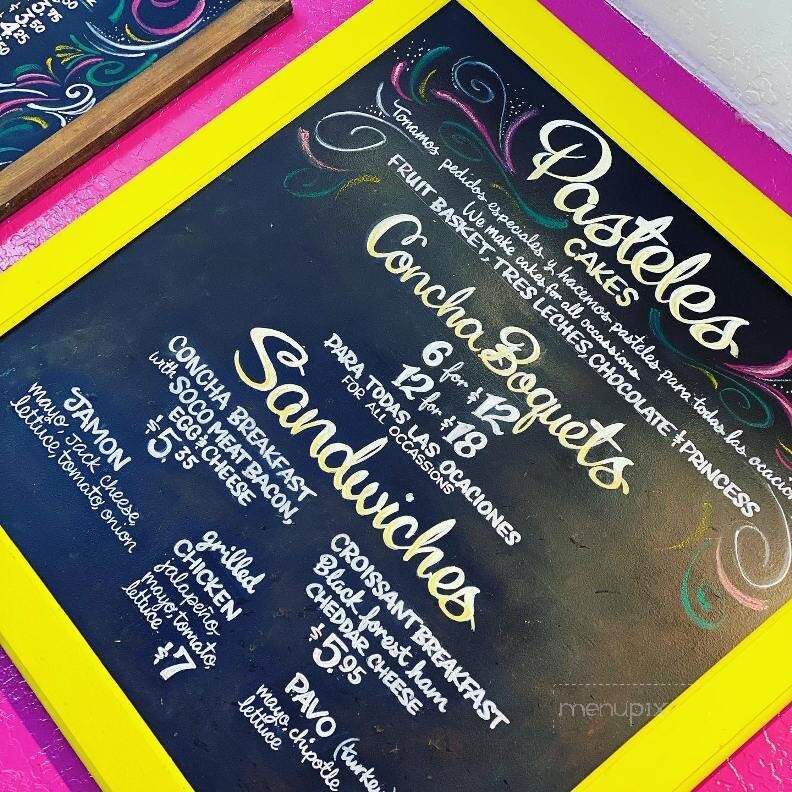 3.75
+ 3.50
4.25
.50
Pasteles
CAKES
Tonamos pedidos especiales y hacemos pasteles para todas las ocacion
We make cakes for all occassions
FRUIT BASKET, TRES LECHES, CHOCOLATE & PRINCESS
Concha Boquets
6 for $12
12 for $18
PARA TODAS LAS OCACIONES
FOR ALL OCCASSIONS
Sandwiches
CONCHA BREAKFAST
with SOCO MEAT BACON,
EGG & CHEESE
$5.35
CROISSANT BREAKFAST
Black forest ham
CHEDDAR CHEESE
$5.95
JAMON
mayo, Jack cheese,
lettuce, tomato, onion
grilled
CHICKEN
jalapeño
mayo, tomato,
lettuce
$7
PAVO (turke
mayo, chipotle
lettuce
menupix